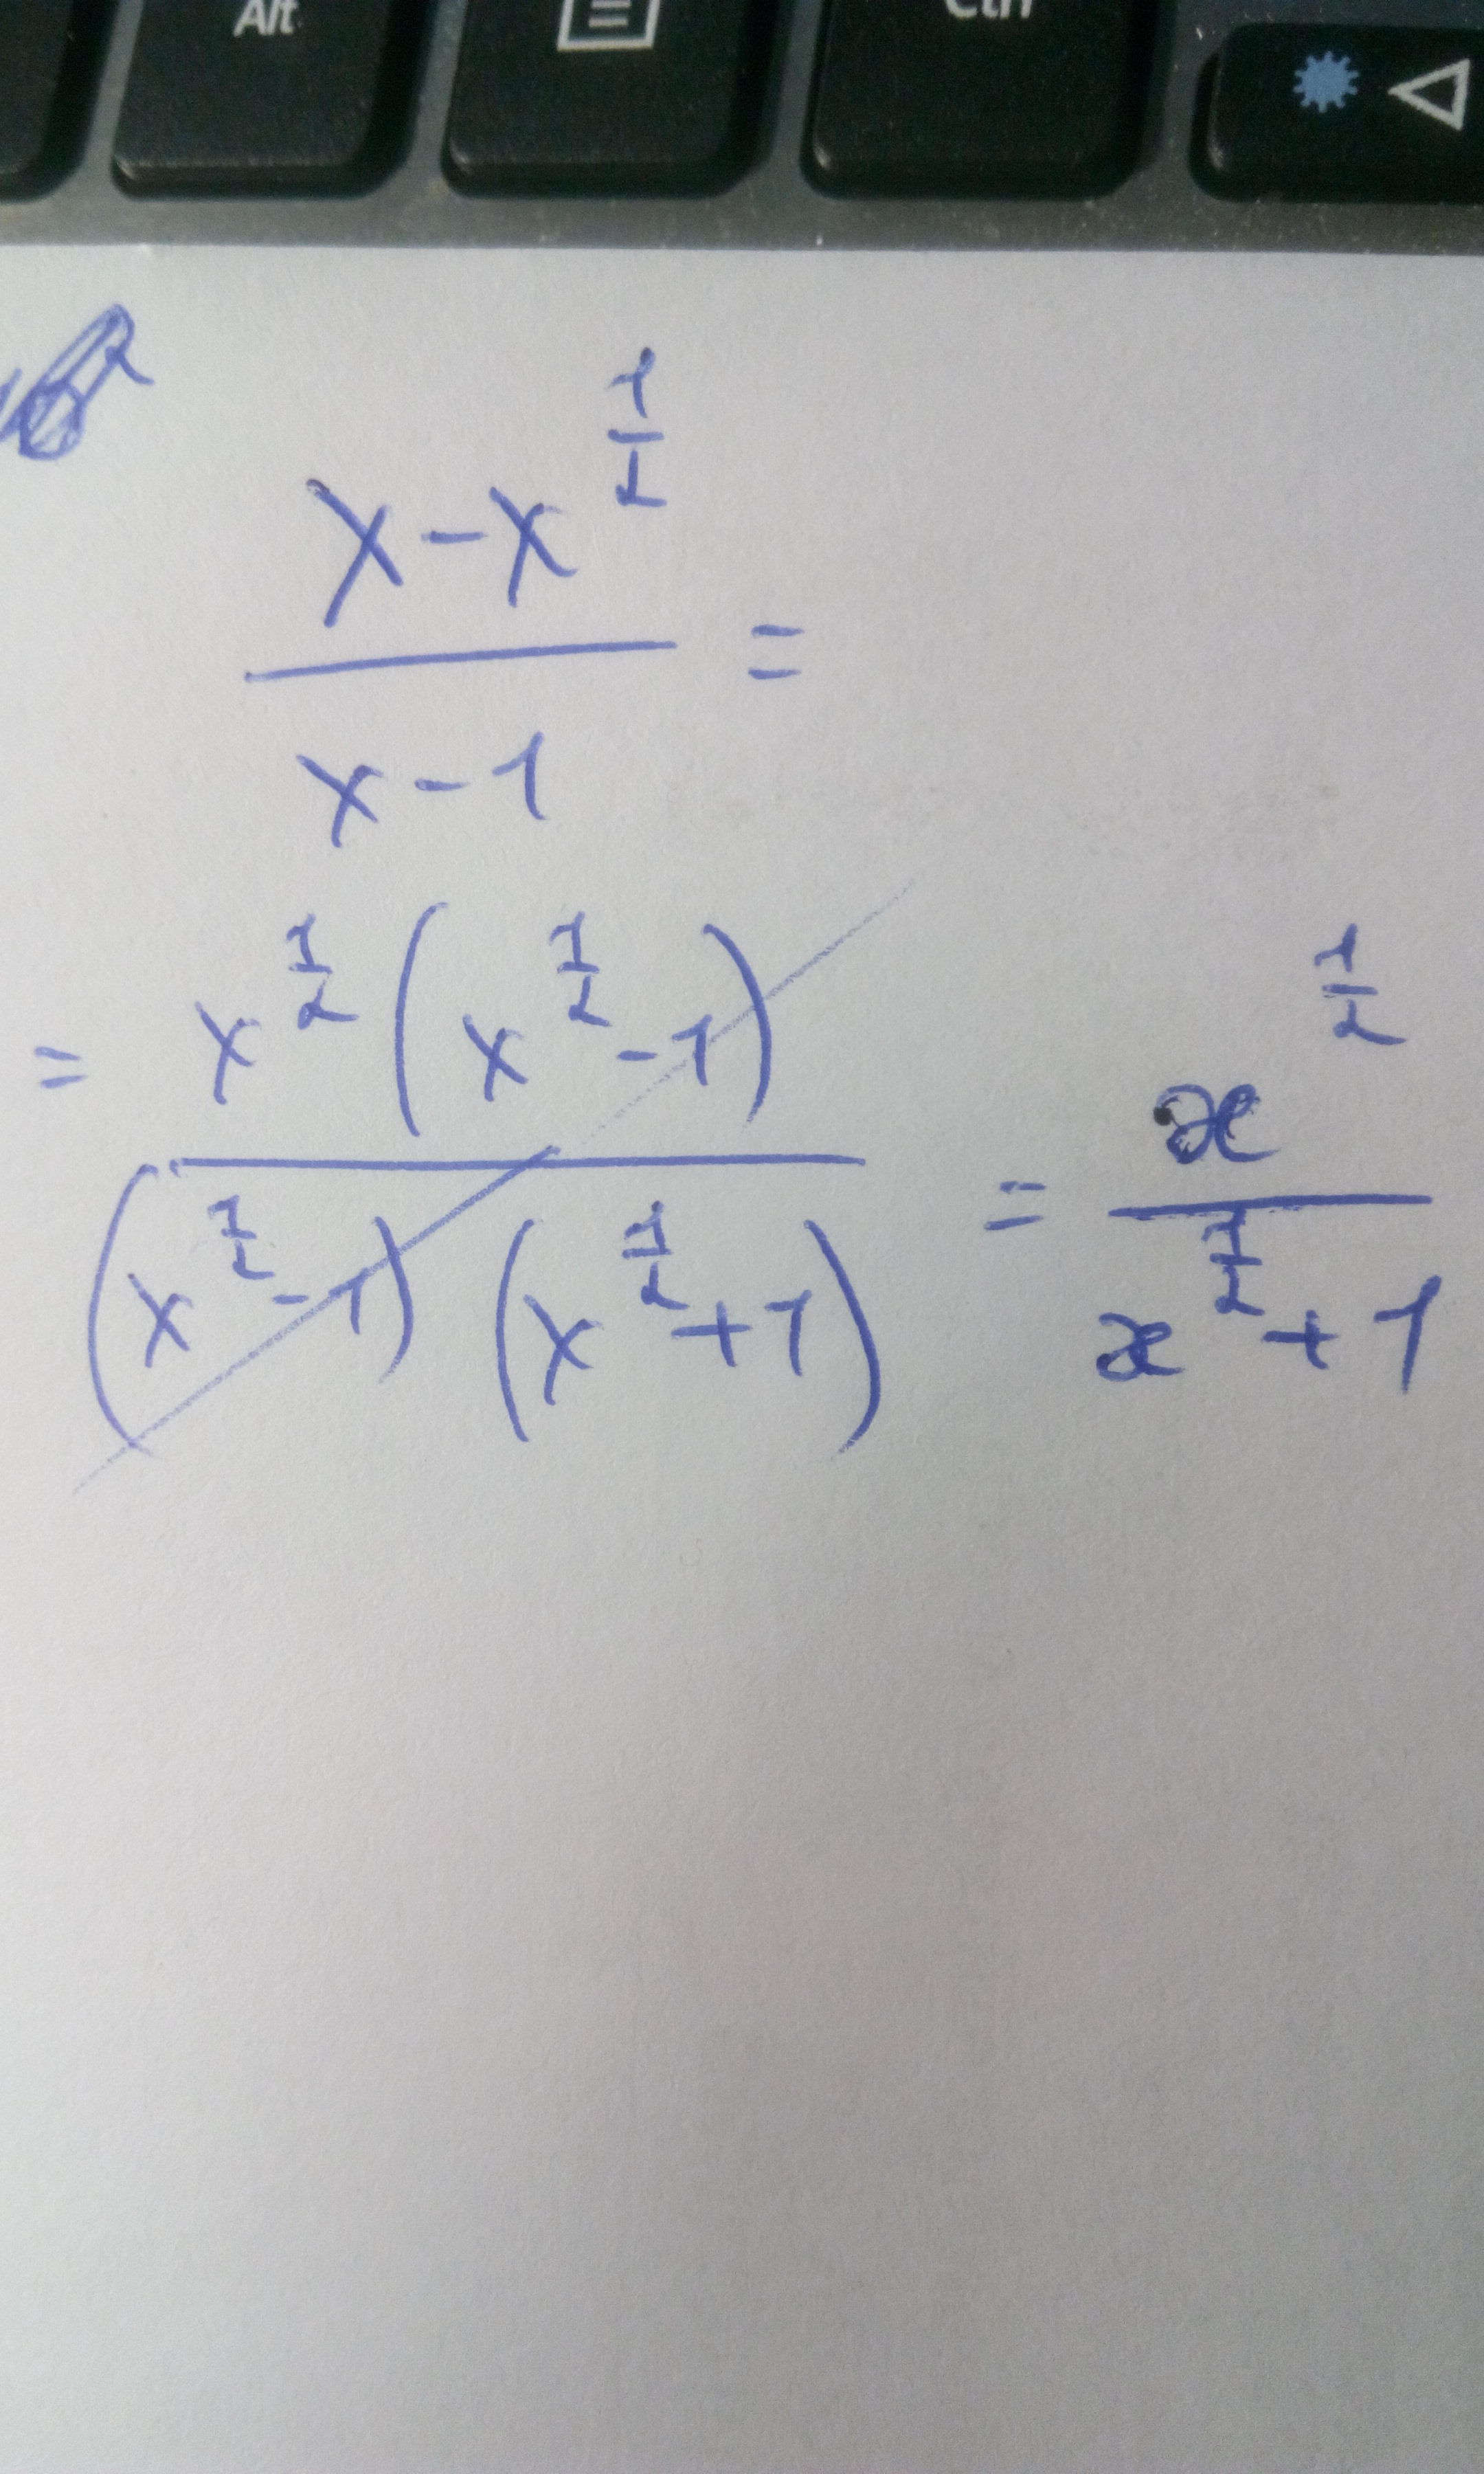 Alt Ctrl
x - x^(1/2)
/ (x - 1) =
= x^(1/2) (x^(1/2) - 1) / (x^(1/2) - 1) (x^(1/2) + 1) = x^(1/2) / x^(1/2) + 1